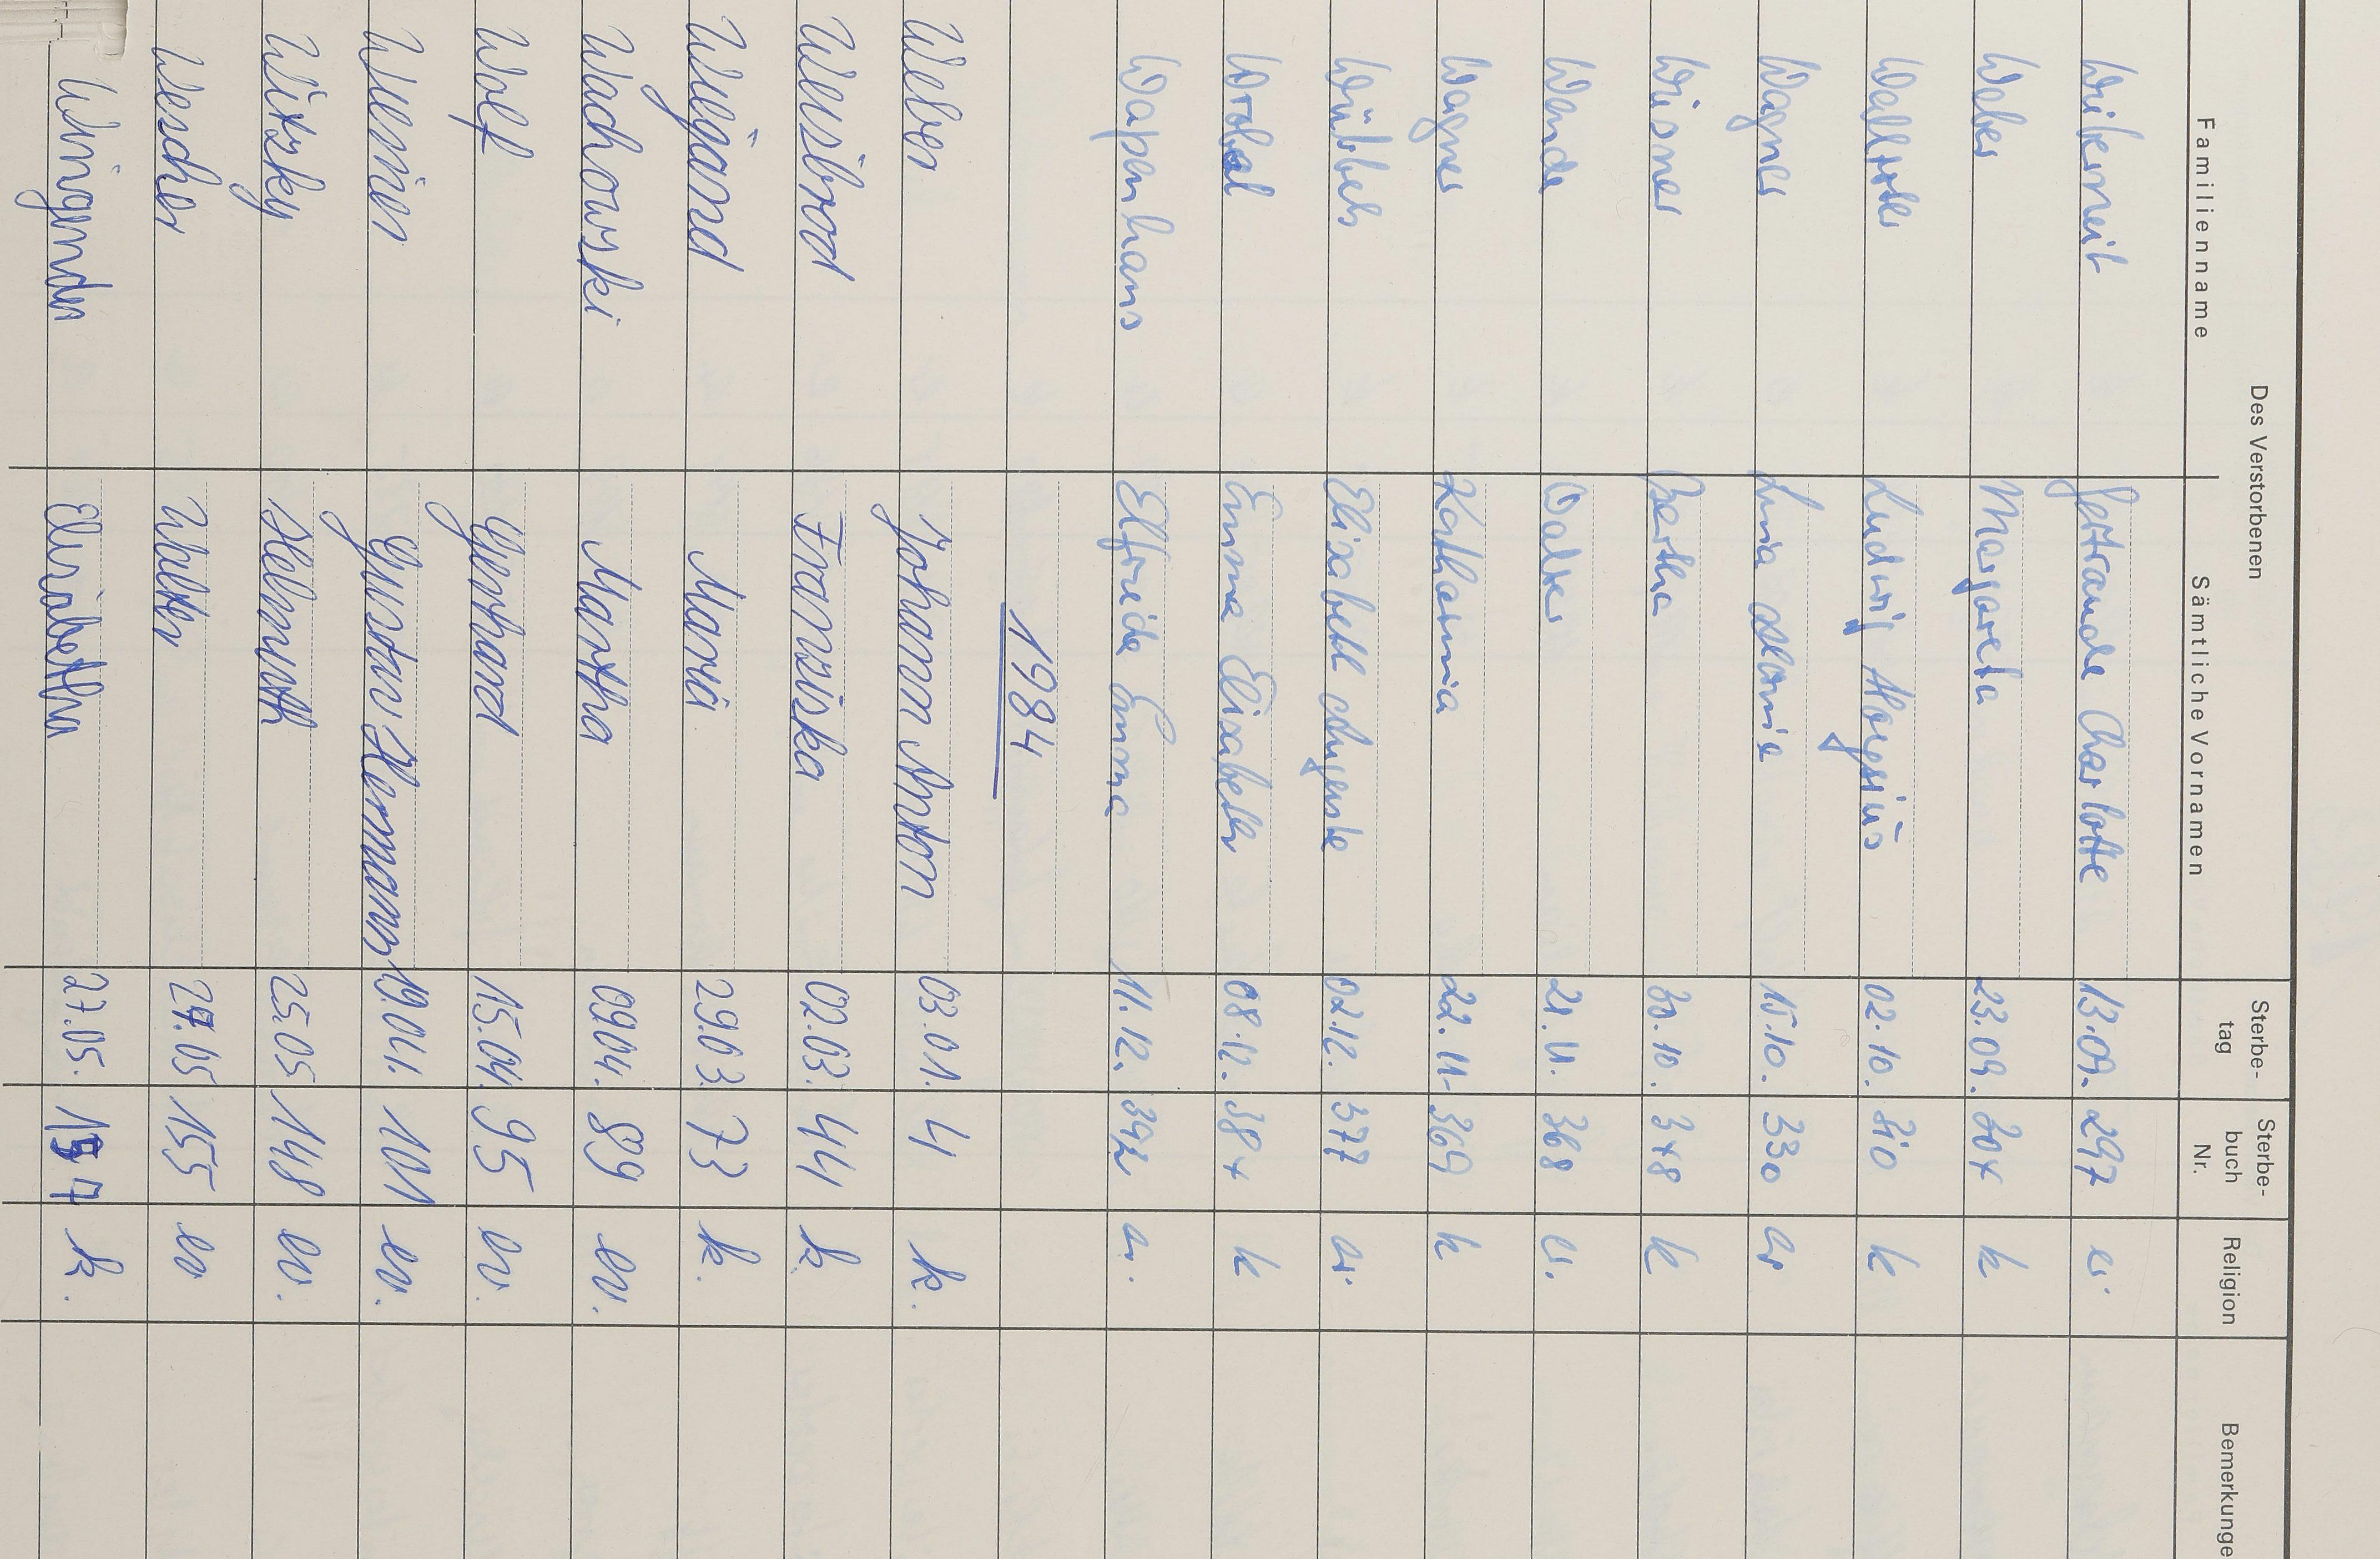 Des Verstorbenen
Familienname Sämtliche Vornamen Sterbe-tag Sterbe-buch Nr. Religion Bemerkunge
Wiberneit Gertraude Charlotte 13.09. 297 ev.
Weber Margareta 23.09. 304 k
Ludwig 02.10. 310 k
Wagner 15.10. 330 ev
Wiesner Bertha 30.10. 348 k
Wende Walter 21.11. 368 ev.
Wagner Katharina 22.11. 369 k
Wübbels Elisabeth Auguste 02.12. 377 ev.
Wrobel Emma Elisabeth 08.12. 384 k
Wapenhans Elfriede Emma 11.12. 392 ev.
1984
Weber Johann Anton 03.01. 4 k.
Weisbrod Franziska 02.03. 44 k.
Wiegand Maria 29.03. 73 k.
Wachowski Martha 09.04. 89 ev.
Wolf Gerhard 15.04. 95 ev.
Werner Gustav Hermann 19.04. 101 ev.
Witzky Helmuth 25.05 148 ev.
Wescher Walter 27.05 155 ev
Wingender Elisabetha 27.05. k.